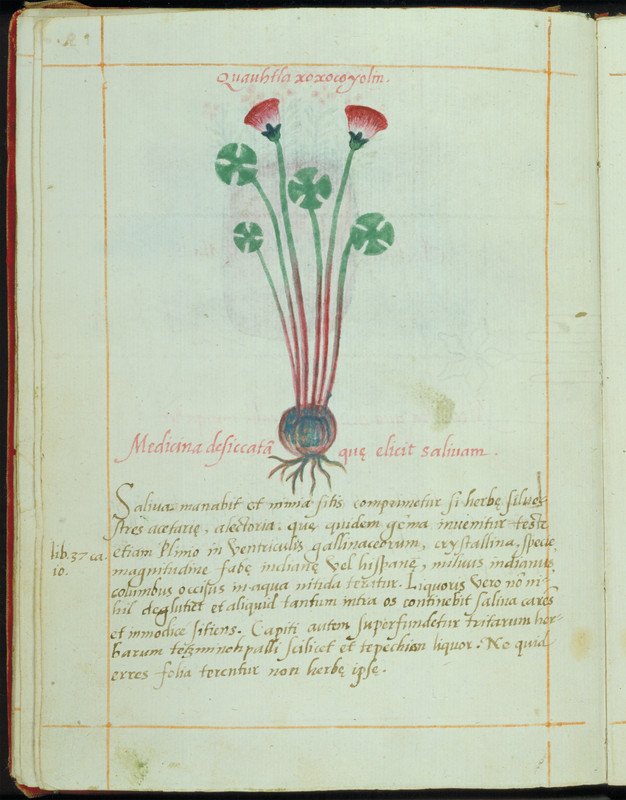 Quauhtla xoxocoyolin.
Medicina desiccatā quę elicit saliuam.
Saliua manabit et nimia sitis comprimetur si herbę silues-
stres acetarię, alectoria, quę quidem gema inuenitur teste
etiam Plinio in Ventriculis gallinaceorum, crystallina specie
lib. 37 ca.
10.
magnitudine fabę indianę vel hispanę, miluus indianus
columbus occisus in aqua nitida teratur. Liquoris vero nō ni-
hil deglutiet et aliquid tantum intra os continebit saliua carēs
et inmodicè sitiens. Capiti autem superfundetur tritarum her-
barum tetzminchpatli scilicet et tepechian liquor. Ne quid
erres folia terentur non herbę ipsę.